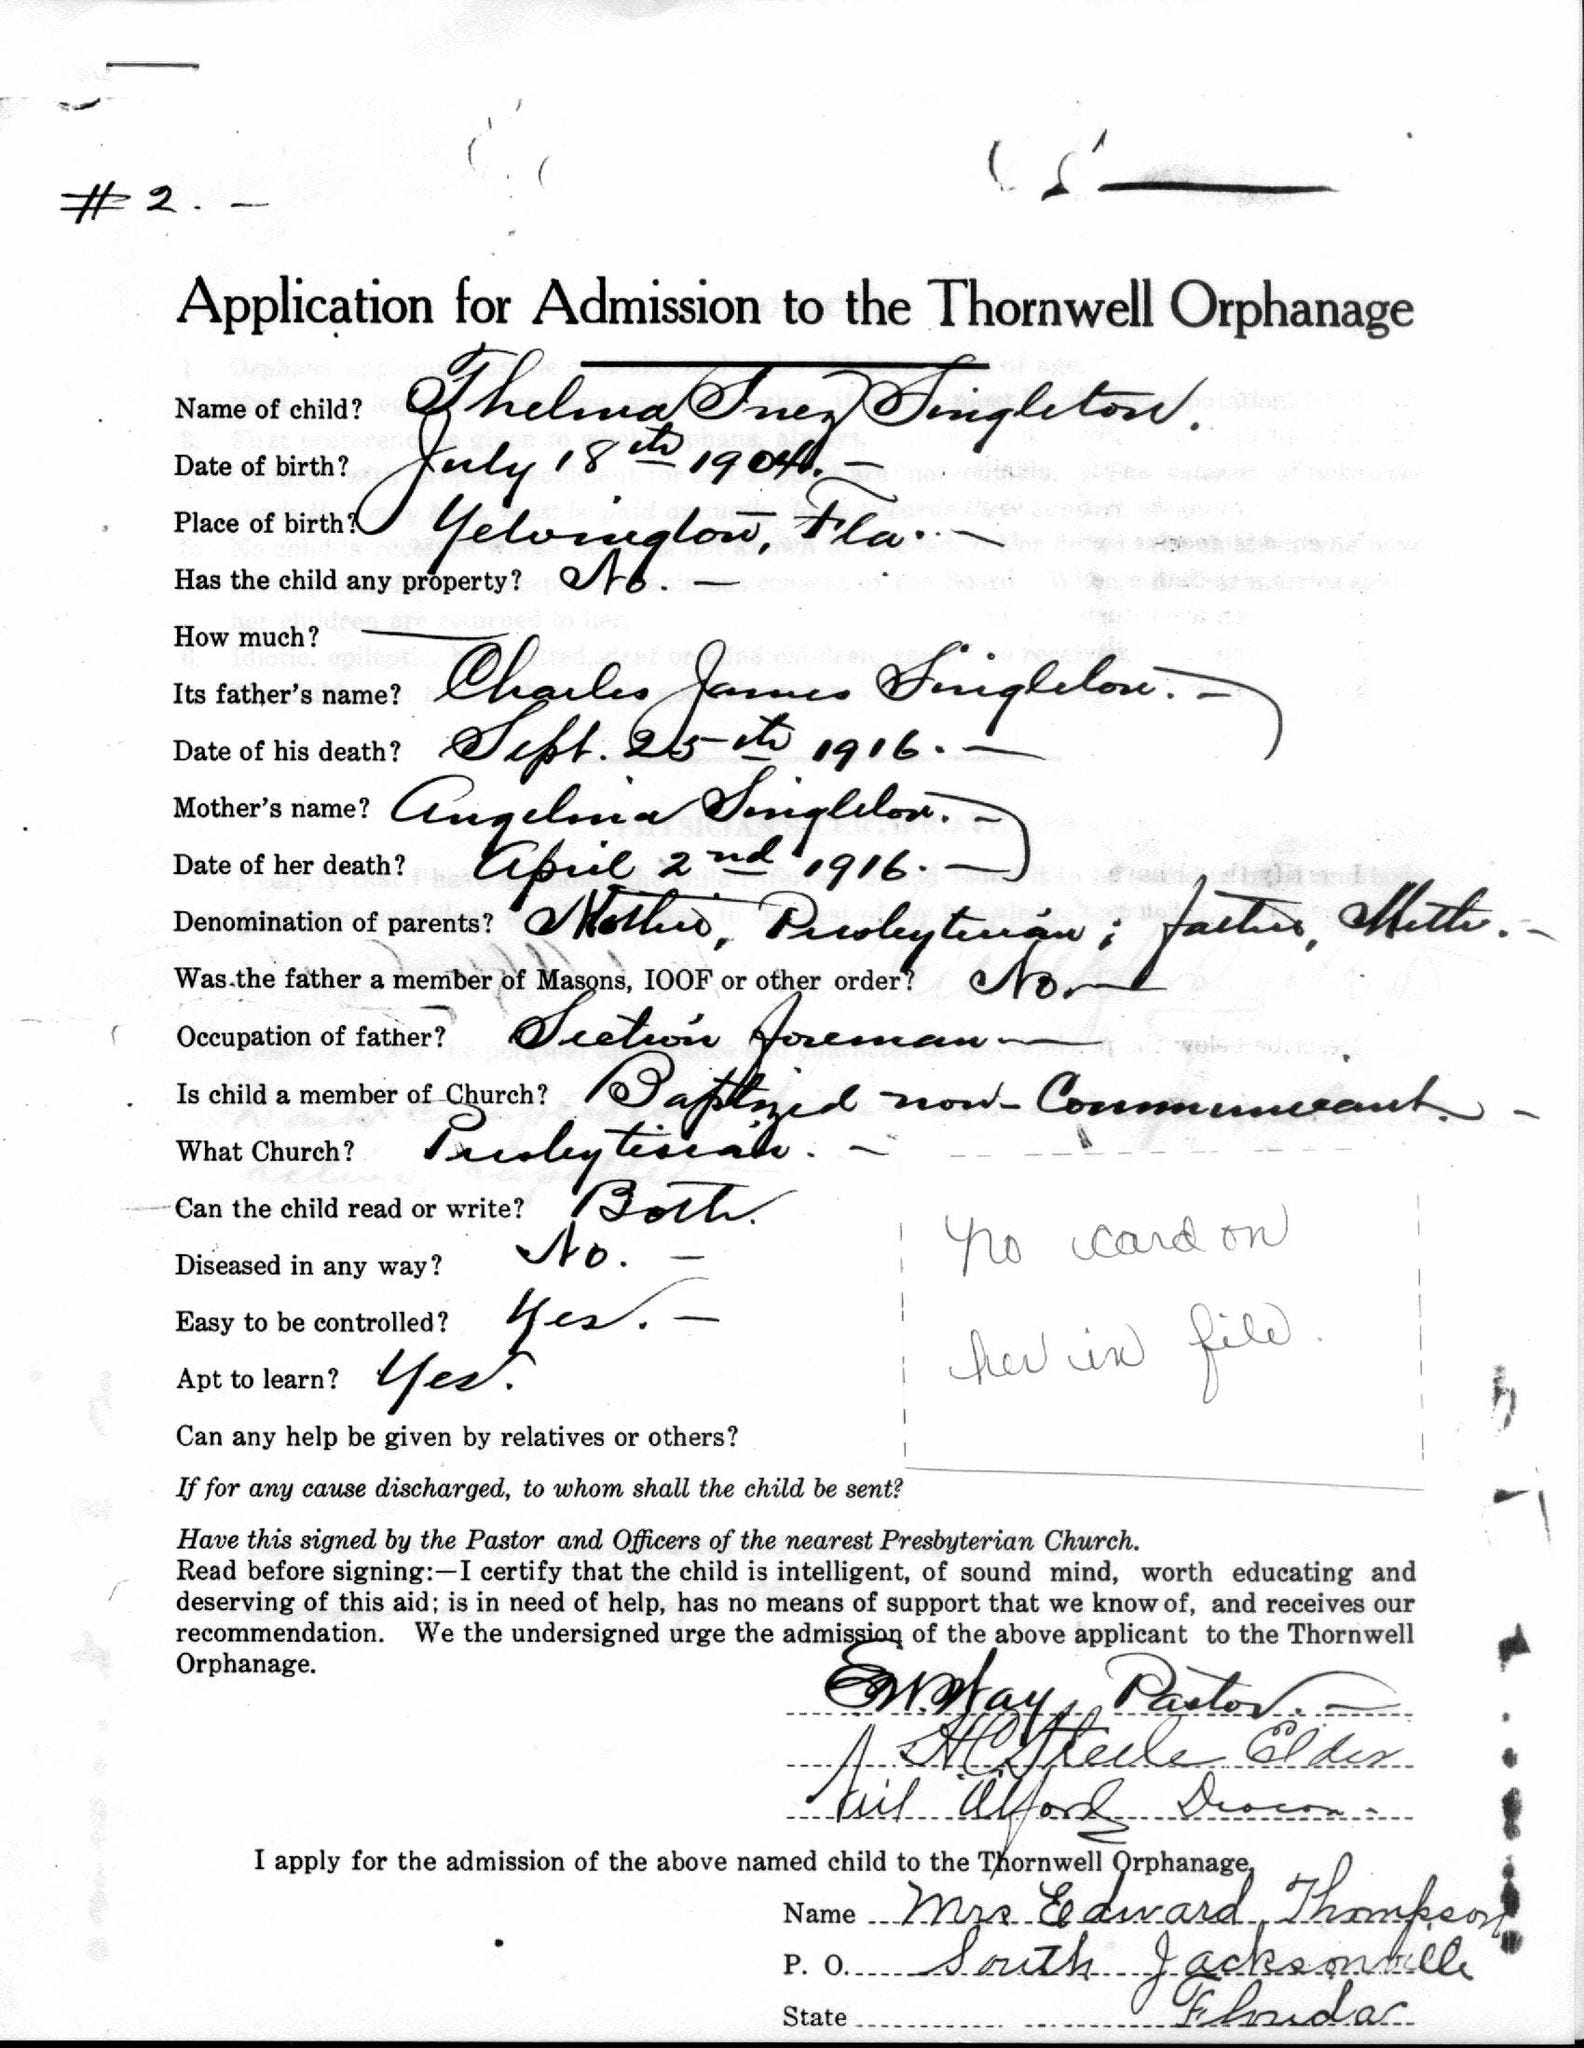 # 2. —
Application for Admission to the Thornwell Orphanage
Name of child? Thelma Inez Singleton.
Date of birth? July 18th 1904. —
Place of birth? Yelvington, Fla. —
Has the child any property? No. —
How much? —
Its father's name? Charles James Singleton. —
Date of his death? Sept. 25th 1916. —
Mother's name? Angelina Singleton. —
Date of her death? April 2nd 1916. —
Denomination of parents? Mother, Presbyterian; father, Meth. —
Was the father a member of Masons, IOOF or other order? No. —
Occupation of father? Section foreman —
Is child a member of Church? Baptized non-Communicant. —
What Church? Presbyterian. —
Can the child read or write? Both.
Diseased in any way? No. —
Easy to be controlled? Yes. —
Apt to learn? Yes.
no card on
her in file.
Can any help be given by relatives or others?
If for any cause discharged, to whom shall the child be sent?
Have this signed by the Pastor and Officers of the nearest Presbyterian Church.
Read before signing:—I certify that the child is intelligent, of sound mind, worth educating and
deserving of this aid; is in need of help, has no means of support that we know of, and receives our
recommendation. We the undersigned urge the admission of the above applicant to the Thornwell
Orphanage.
E.W. Way, Pastor. —
H C Steele Elder
Neil Alford Deacon. -
I apply for the admission of the above named child to the Thornwell Orphanage,
Name Mrs Edward Thompson
P. O. South Jacksonville
State Florida